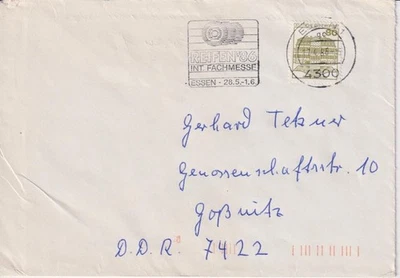 REIFEN '86
INT. FACHMESSE
ESSEN - 28.5.-1.6.
80
4300
Gerhard Tezner
Genossenschaftsstr. 10
Goßnitz
D.D.R. 7422